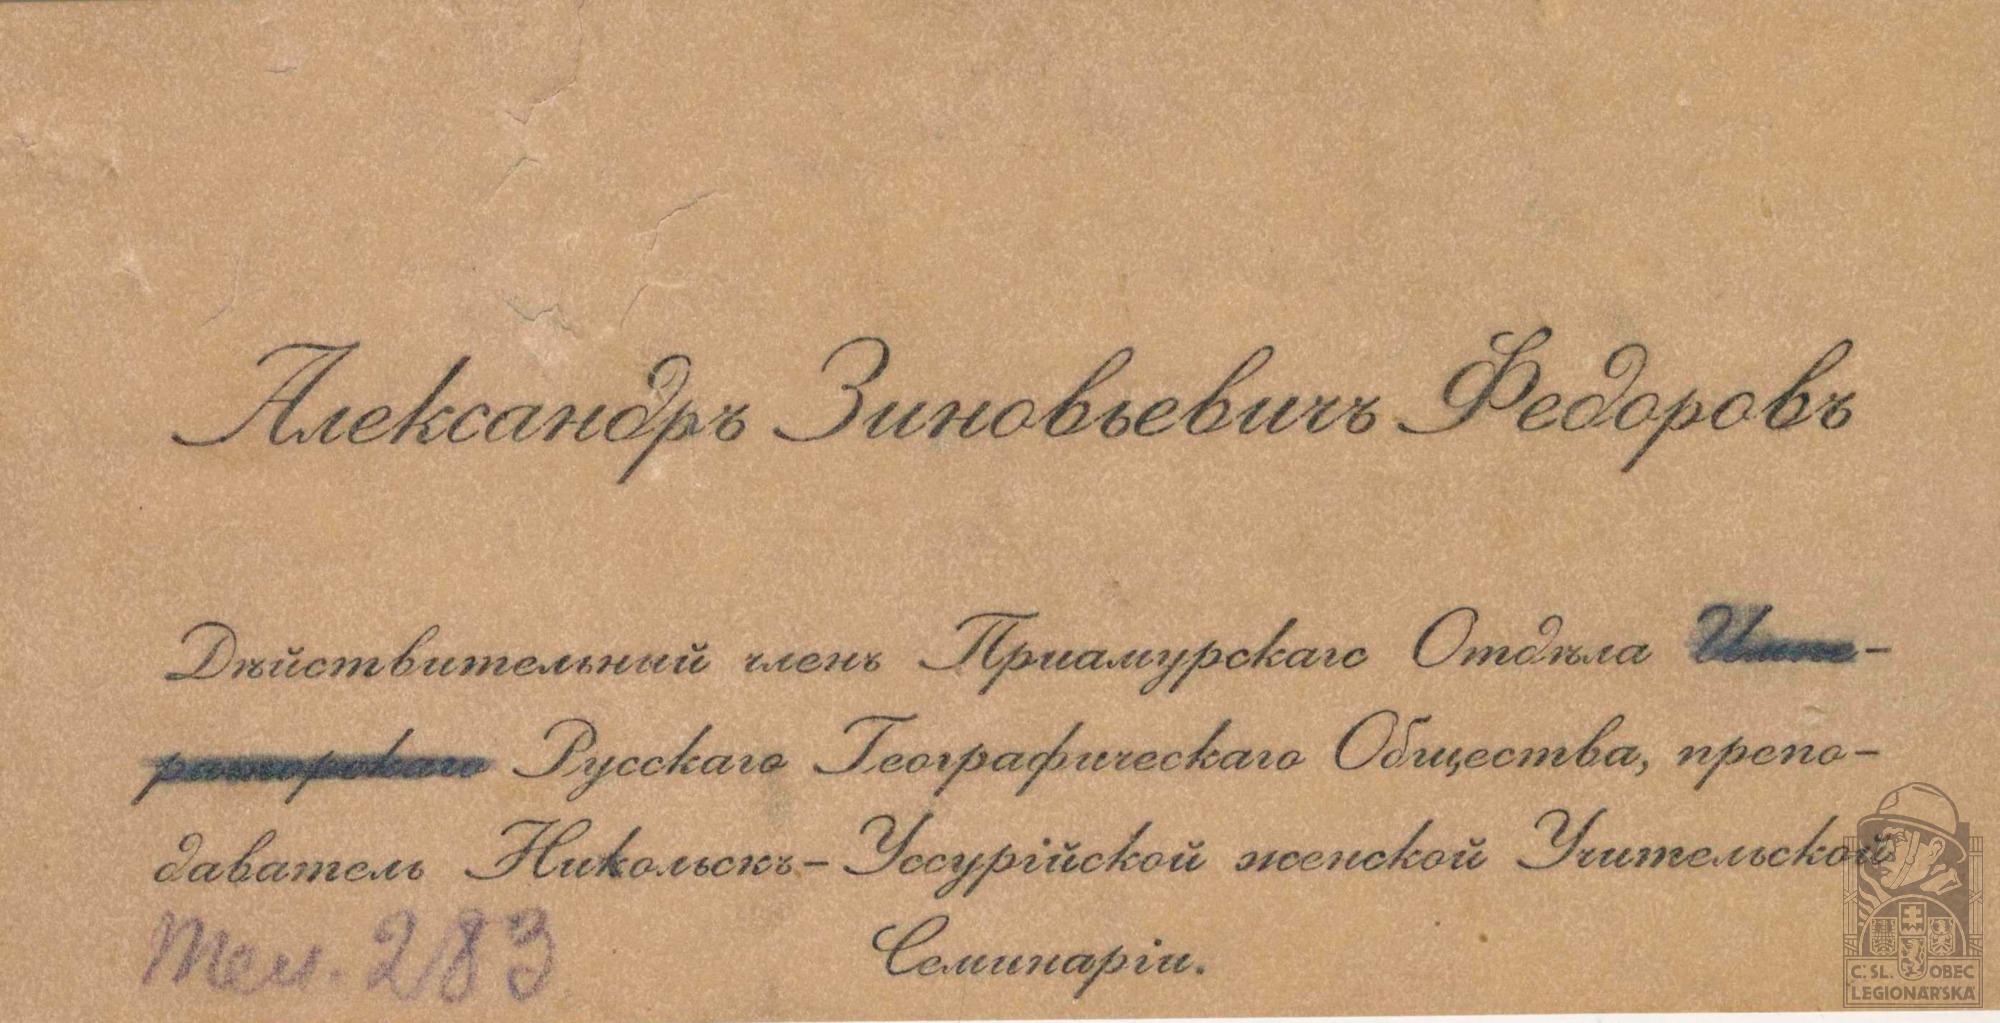 Александръ Зиновьевичъ Федоровъ
Дѣйствительный членъ Приамурскаго Отдѣла Импе-
раторскаго Русскаго Географическаго Общества, препо-
даватель Никольскъ-Уссурійской женской Учительской
Семинаріи.
Тел. 283
Č. SL. OBEC
LEGIONÁŘSKÁ